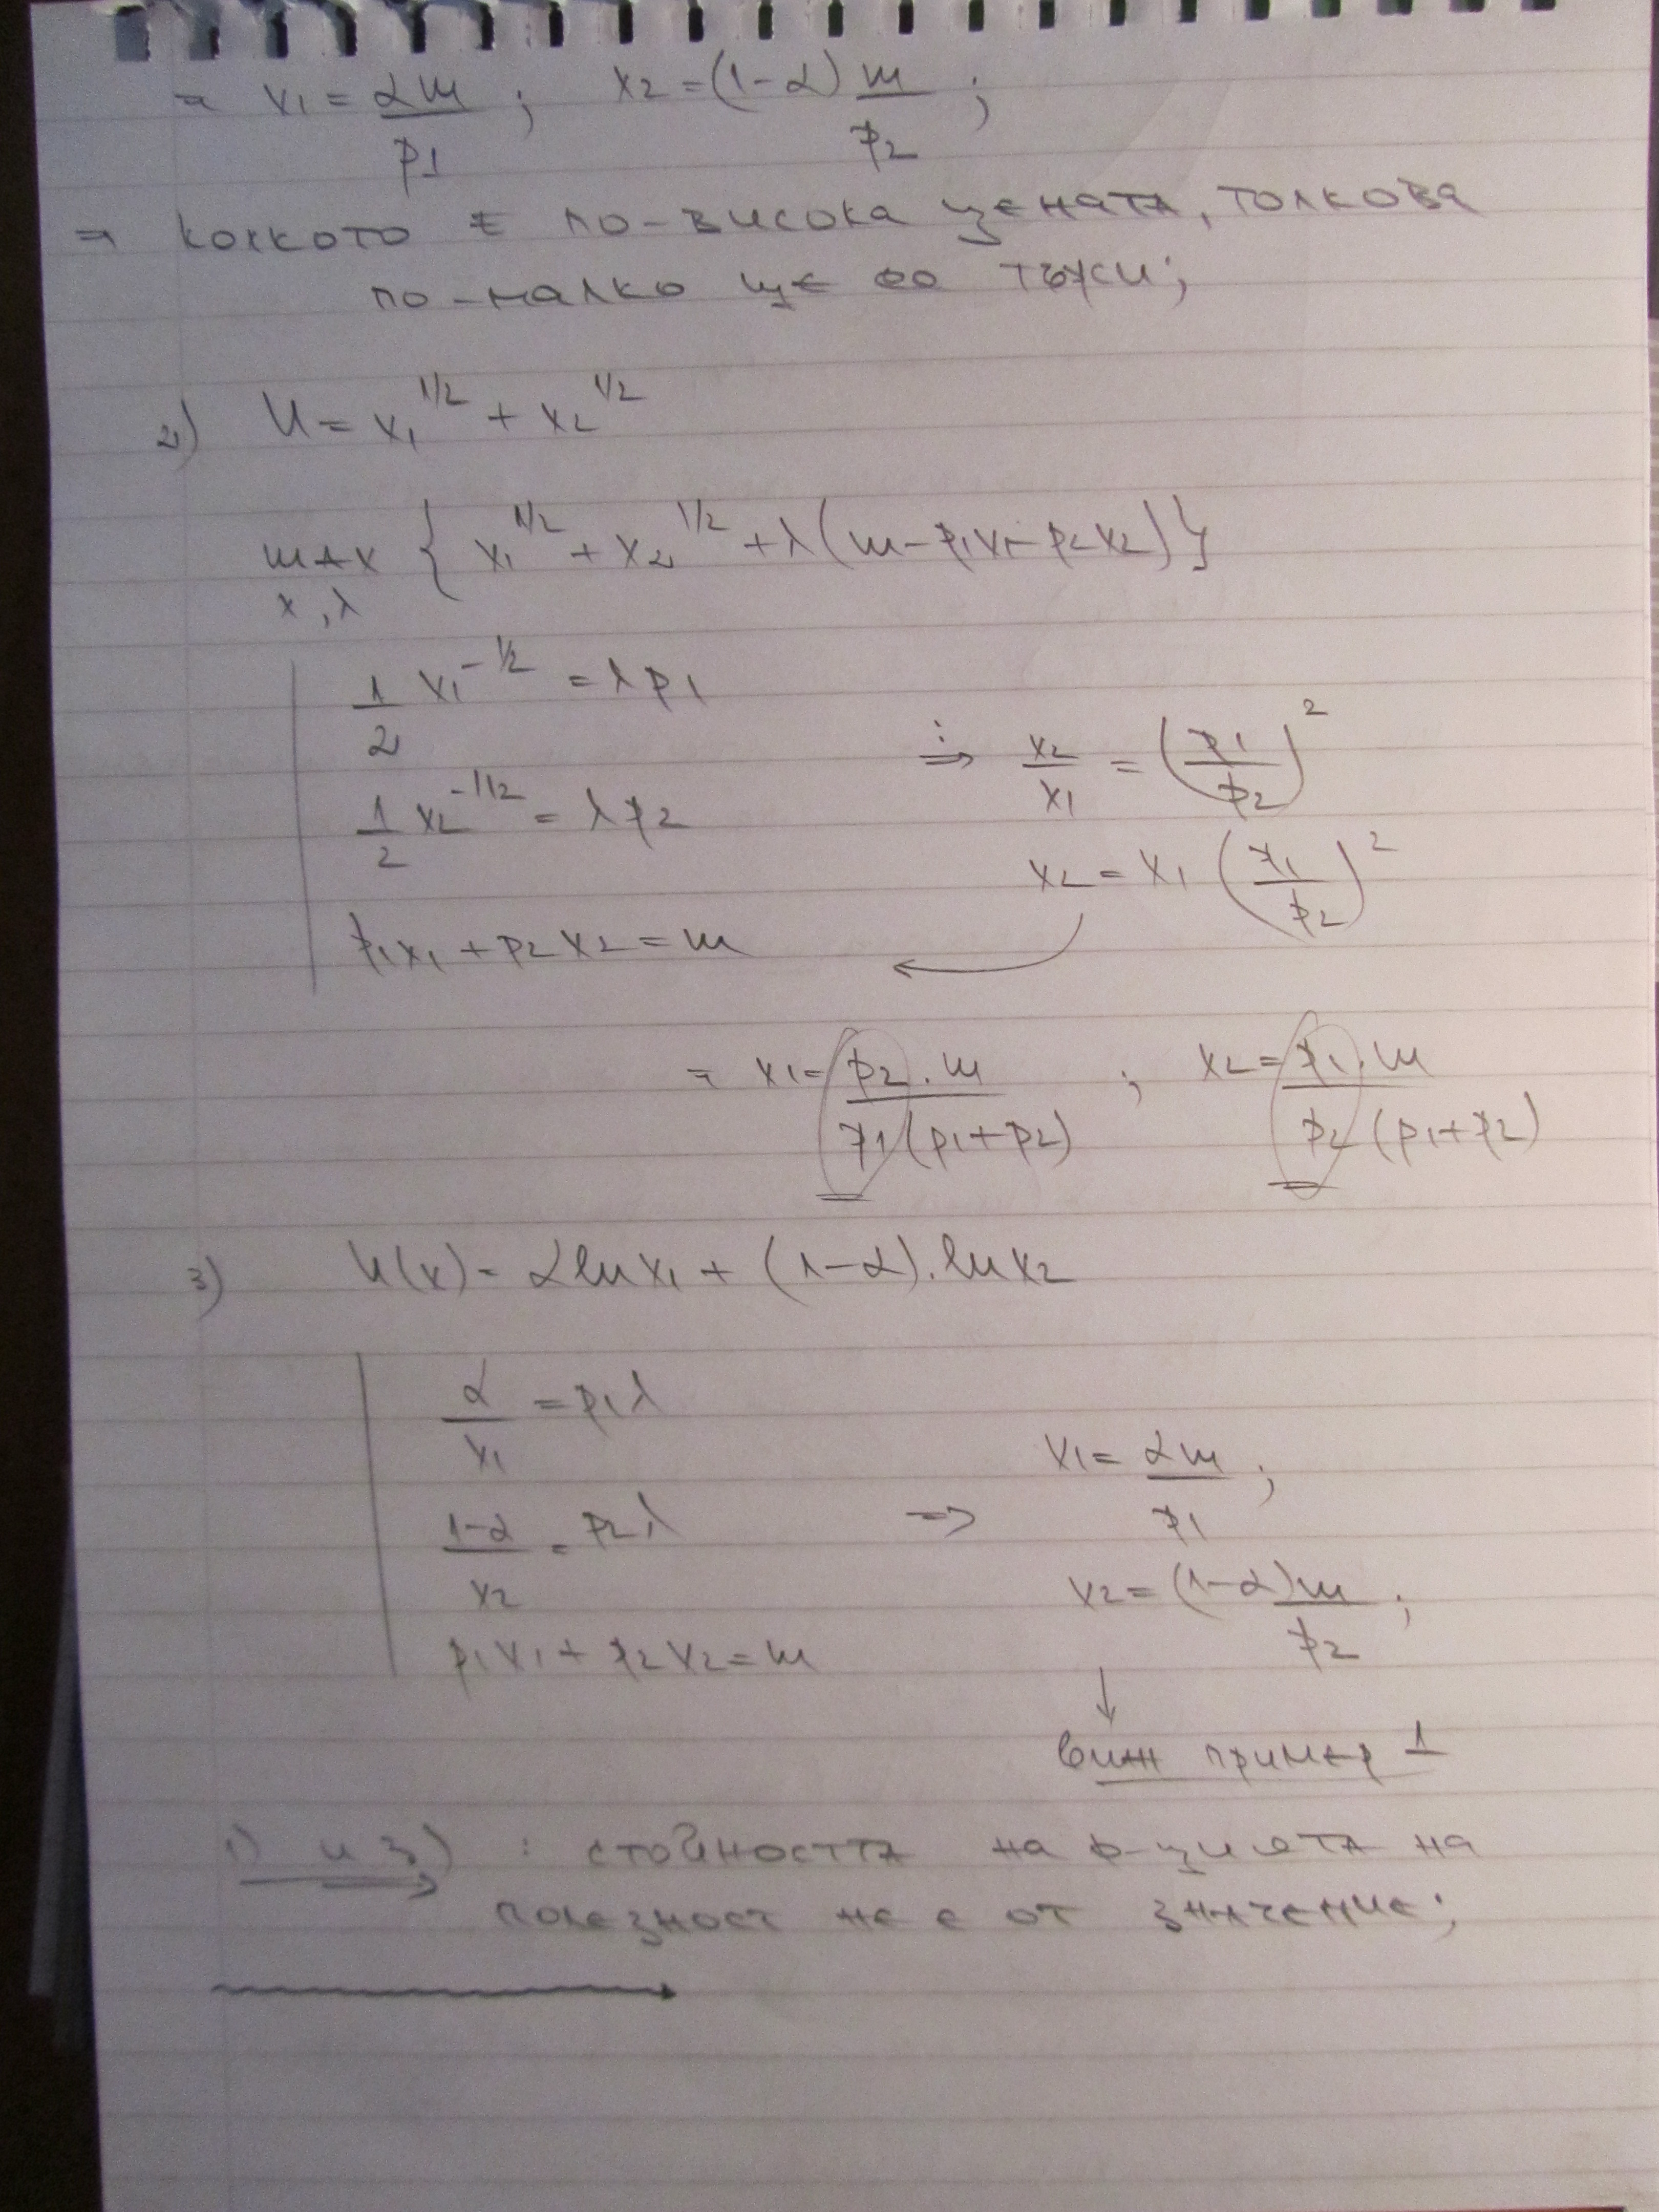 ⇒ x₁ = αm/p₁ ; x₂ = (1-α) m/p₂ ;
⇒ колкото е по-висока цената, толкова
по-малко ще се търси;
2) U = x₁^1/2 + x₂^1/2
max x,λ { x₁^1/2 + x₂^1/2 + λ(m - p₁x₁ - p₂x₂) }
1/2 x₁^-1/2 = λp₁
1/2 x₂^-1/2 = λp₂
p₁x₁ + p₂x₂ = m
: ⇒ x₂/x₁ = (p₁/p₂)²
x₂ = x₁ (p₁/p₂)²
⇒ x₁ = p₂.m / p₁(p₁+p₂) ; x₂ = p₁.m / p₂(p₁+p₂)
3) U(x) = α ln x₁ + (1-α). ln x₂
α/x₁ = p₁λ
1-α/x₂ = p₂λ
p₁x₁ + p₂x₂ = m
⇒ x₁ = αm/p₁ ;
x₂ = (1-α)m/p₂ ;
↓
виж пример 1
1) и 3) : стойността на ф-цията на
полезност не е от значение;